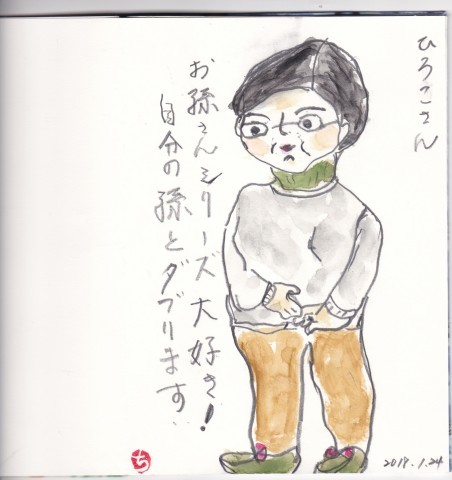 ひろこさん
お孫さんシリーズ大好き!
自分の孫とダブります。
ち
2018.1.24